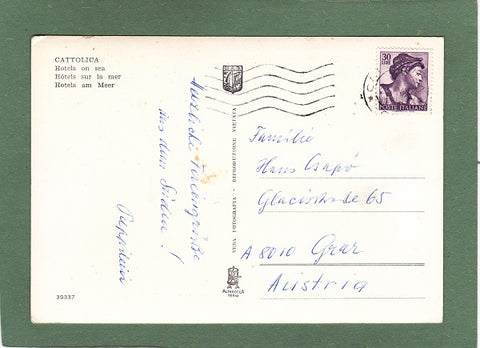 CATTOLICA
Hotels on sea
Hôtels sur la mer
Hotels am Meer
30 LIRE
POSTE ITALIANE
Herzliche Feriengrüße
aus dem Süden!
VERA FOTOGRAFIA - RIPRODUZIONE VIETATA
Familie
Hans Csapó
Glacisstraße 65
A 8010 Graz
Austria
30337